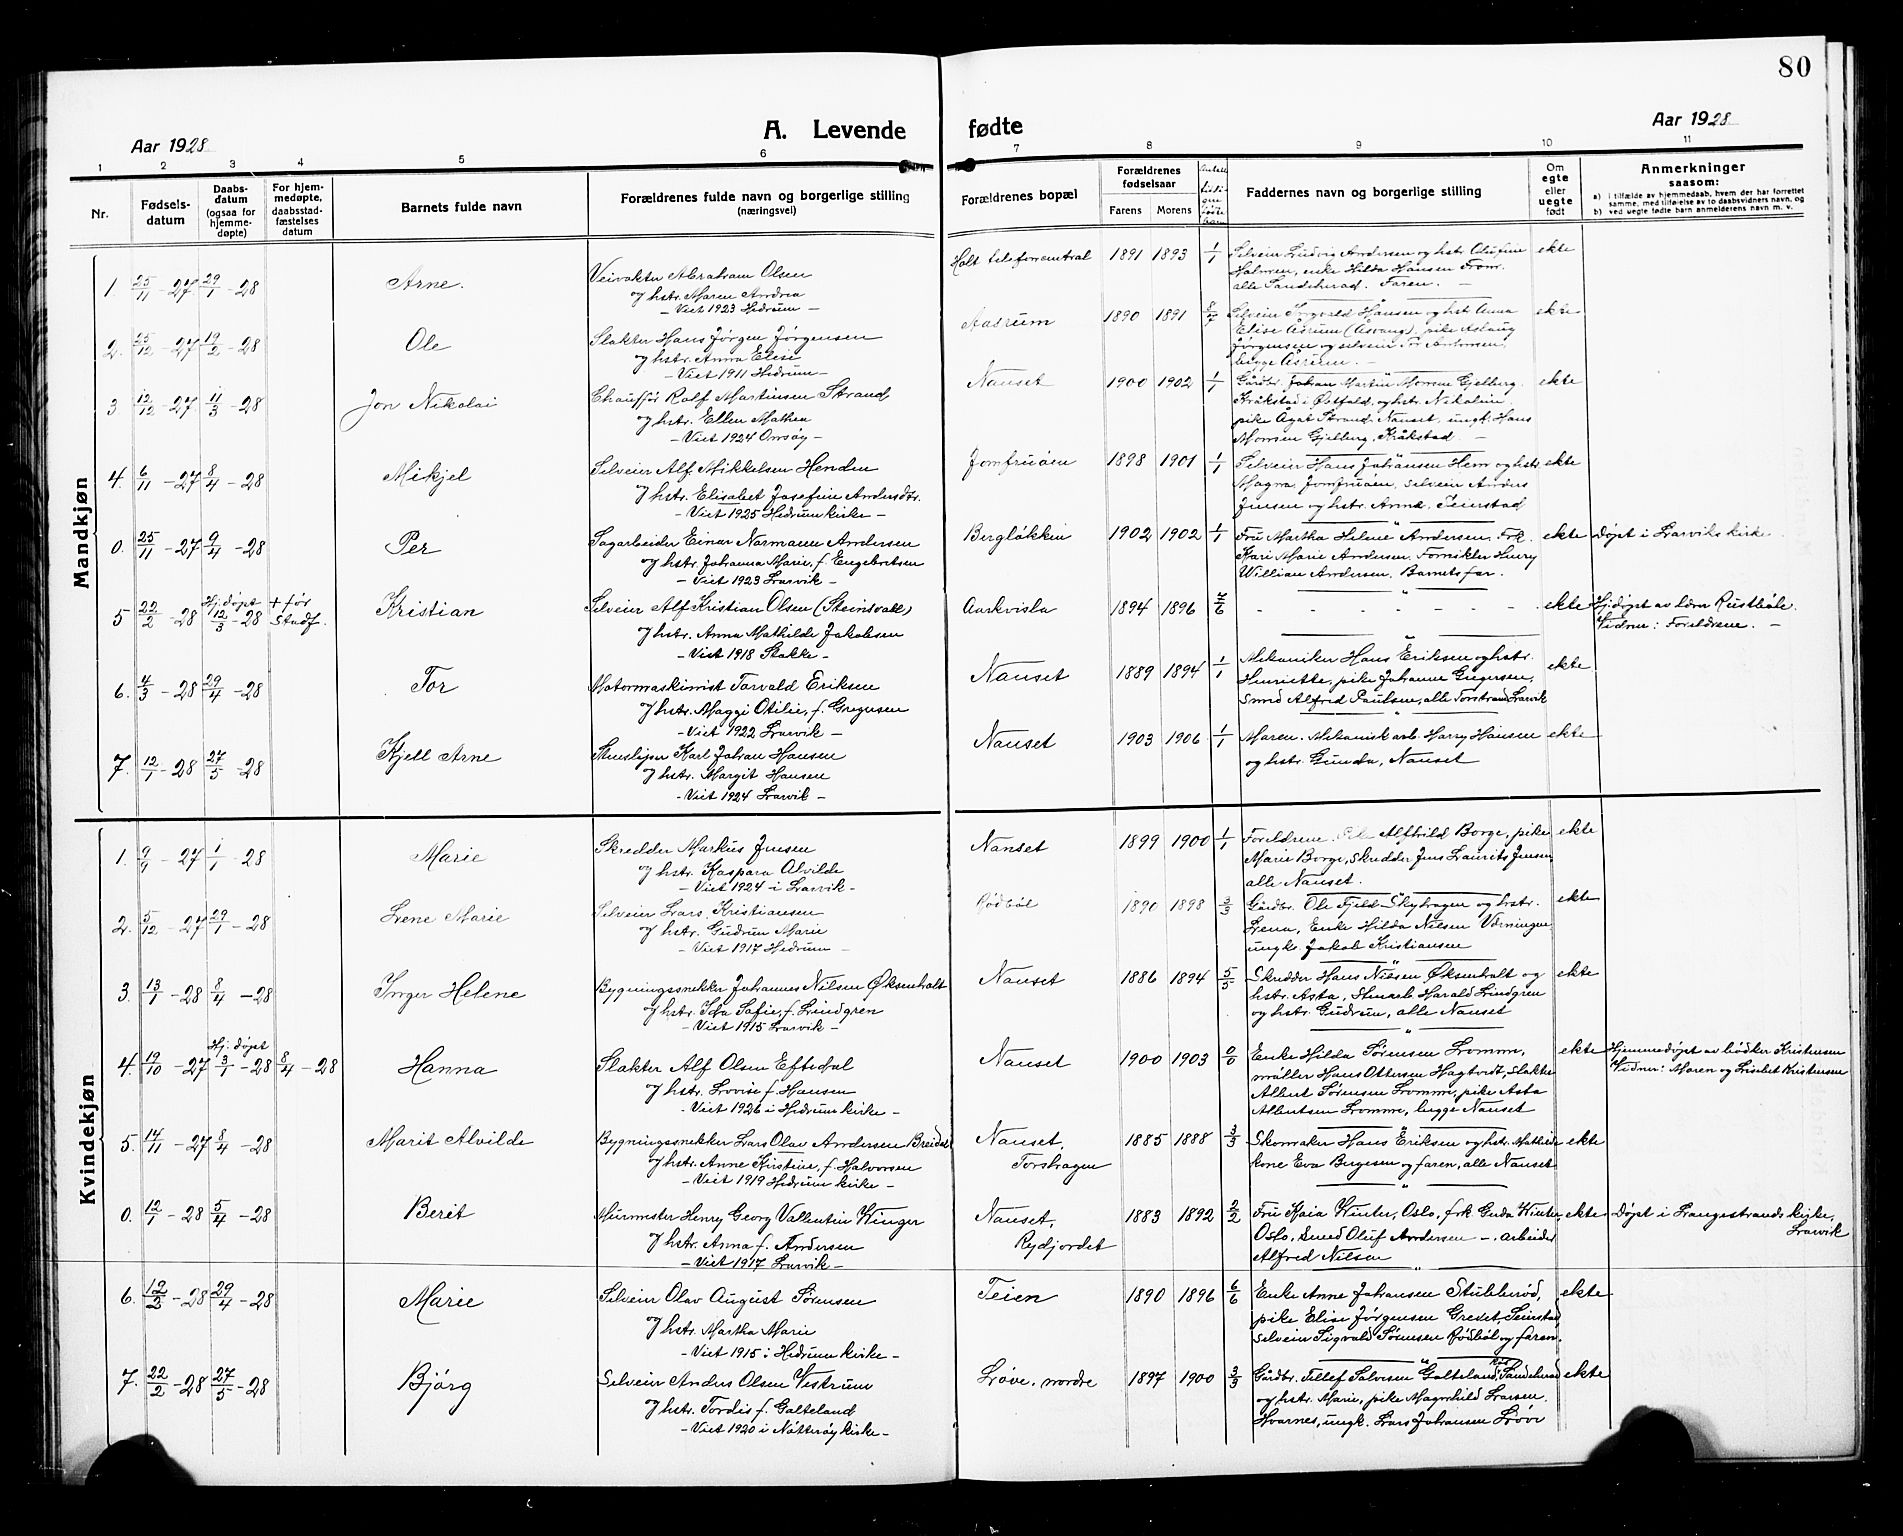 80
Aar 1928
A. Levende fødte
Aar 1928
1 2 3 4 5 6 7 8 9 10 11
Nr.
Fødsels-
datum
Daabs-
datum
(ogsaa for
hjemme-
døpte)
For hjem-
medøpte,
daabsstad-
fæstelses
datum
Barnets fulde navn
Forældrenes fulde navn og borgerlige stilling
(næringsvei)
Forældrenes bopæl
Forældrenes
fødselsaar
Farens Morens
Faddernes navn og borgerlige stilling
Om
egte
eller
uegte
født
Anmerkninger
saasom:
a) i tilfælde av hjemmedaab, hvem der har forrettet
samme, med tilføielse av to daabsvidners navn, og
b) ved uegte fødte barn anmelderens navn m. v.
Mandkjøn
1. 25/11 - 27 29/1 - 28 Arne. Veivakter Abraham Olsen Holt telefoncentral 1891 1893 1/1 Selveier Ludvig Andersen og hstr. Olufine ekte
og hstr. Maren Andrea Holmen, enke Hilda Hansen From.
- Viet 1923 Hedrum - alle Sandeherad. Faren. -
2. 25/12 - 27 19/2 - 28 Ole Slakter Hans Jørgen Jørgensen Aasrum 1890 1891 8/7 Selveier Ingvald Hansen og hst. Anna ekte
og hstr. Anna Elise Elise Åsrum (Åsvang), pike Aslaug
- Viet 1911 Hedrum - Jørgensen og selveier Tor Antonsen,
begge Åsrum. -
3 12/12 - 27 11/3 - 28 Jon Nikolai Chauffør Rolf Martinsen Strand Nanset 1900 1902 1/1 Gårdbr. Johan Martin Momsen Gjelberg. ekte
og hstr. Ellen Mathea Kråkstad i Østfold, og hstr. Nikoline.
- Viet 1924 Onsøy - pike Ågot Strand, Nanset, ungk. Hans
Momsen Gjelberg, Kråkstad. -
4. 6/11 - 27 8/4 - 28 Mikjel Selveier Alf Mikkelsen Henden Jomfruåsen 1898 1901 1/1 Selveier Hans Johansen Hem og hstr. ekte
og hstr. Elisabet Josefine Andersdtr. Magna, Jomfruåsen, selveier Anders
- Viet 1925 Hedrum kirke - Jensen og hstr. Anna, Teienstad
0. 25/11 - 27 9/4 - 28 Per Sagarbeider Einar Normann Andersen Bergløkken 1902 1902 1/1 Fru Martha Helene Andersen. Frk. ekte Døpt i Larviks kirke.
og hstr. Johanna Marie, f. Engebretsen Kari Marie Andersen. Fornikler Henry
- Viet 1923 Larvik - Willian Andersen. Barnets far.
5 22/2 - 28 Hj. døpt 12/3 - 28 + før Stadf. Kristian Selveier Alf Kristian Olsen (Steinsvoll) Aarkvisla 1894 1896 7/6 - - - - - - - ekte Hj. døpt av lærer Rustbøle.
og hstr. Anna Mathilde Jakobsen Vidner: Foreldrene. -
- Viet 1918 Stokke -
6. 4/3 - 28 29/4 - 28 Tor Motormaskinist Torvald Eriksen Nanset 1889 1894 1/1 Mekaniker Hans Eriksen og hstr. ekte
og hstr. Maggi Otilie, f. Gregersen Henriette, pike Johanne Gregersen,
- Viet 1922 Larvik - Smed Alfred Paulsen, alle Torstrand Larvik
7. 12/1 - 28 27/5 - 28 Kjell Arne Stensliper Karl Johan Hansen Nanset 1903 1906 1/1 Moren. Mekanisk arb. Harry Hansen ekte
og hstr. Margit Hansen og hstr. Gunda, Nanset
- Viet 1924 Larvik -
Kvindekjøn
1. 9/9 - 27 1/1 - 28 Marie Skredder Markus Jensen Nanset 1899 1900 1/1 Foreldrene. Alfhild Borge, pike ekte
og hstr. Kaspara Alvilde Marie Borge, Skredder Jens Laurits Jensen
- Viet 1924 i Larvik - alle Nanset.
2. 5/12 - 27 29/1 - 28 Lene Marie Selveier Lars Kristiansen Rødbøl 1890 1898 3/3 Gårdbr. Ole Fjeld Skyhagen og hstr. ekte
og hstr. Gudrun Marie Lena, Enke Hilda Nilsen
- Viet 1917 Hedrum - ungk. Jakob Kristiansen
3. 13/1 - 28 8/4 - 28 Inger Helene Bygningssnekker Johannes Nilsen Øksenholt Nanset 1886 1894 5/5 Skredder Hans Nilsen Øksenholt og ekte
og hstr. Ida Sofie, f. Lindgren hstr. Asta, Stenarb. Harald Lindgren
- Viet 1915 Larvik - og hstr. Gudrun, alle Nanset
4. 19/10 - 27 Hj. døpt 3/1 - 28 8/4 - 28 Hanna Slakter Alf Olsen Eftedal Nanset 1900 1903 0/0 Enke Hilda Sørensen Lomme, ekte Hjemmedøpt av bødker Kristensen
og hstr. Lovise f. Hansen møller Hans Ottersen Hagtvedt, Slakter Vidner: Maren og Liselet Kristensen
- Viet 1926 i Hedrum kirke - Albert Sørensen Lomme, pike Asta
Albertsen Lomme, begge Nanset
5. 14/11 - 27 8/4 - 28 Marit Alvilde Bygningssnekker Lars Olav Andersen Breidal Nanset, 1885 1888 3/3 Skomaker Hans Eriksen og hstr. Mathilde ekte
og hstr. Anne Kirstine, f. Halvorsen Torshagen kone Eva Bergesen og faren, alle Nanset
- Viet 1919 Hedrum kirke -
0. 12/1 - 28 5/4 - 28 Berit Murmester Henry Georg Vallentin Winger Nanset, 1883 1892 2/2 Fru Kaia Winter, Oslo, frk Gerda Winter, ekte Døpt i Langestrands kirke,
og hstr. Anna f. Andersen Rydjordet Oslo, Smed Oluf Andersen -, arbeider Larvik
- Viet 1917 Larvik - Alfred Nilsen
6. 12/2 - 28 29/4 - 28 Marie Selveier Olav August Sørensen Teien 1890 1896 6/6 Enke Anne Johansen Stubberød, ekte
og hstr. Martha Marie pike Elise Jørgensen Teienstad
- Viet 1915 i Hedrum kirke - Selveier Sigvald Sørensen Rødbøl og faren
7. 22/2 - 28 27/5 - 28 Bjørg Selveier Anders Olsen Vestrum Løve, nordre 1897 1900 3/3 Gårdbr. Tellef Salvesen Galteland, Sandeherad ekte
og hstr. Tordis f. Galteland og hstr. Marie, pike Magnhild Larsen
- Viet 1920 i Nøtterøy kirke - Hvarnes, ungk. Lars Johansen Løve